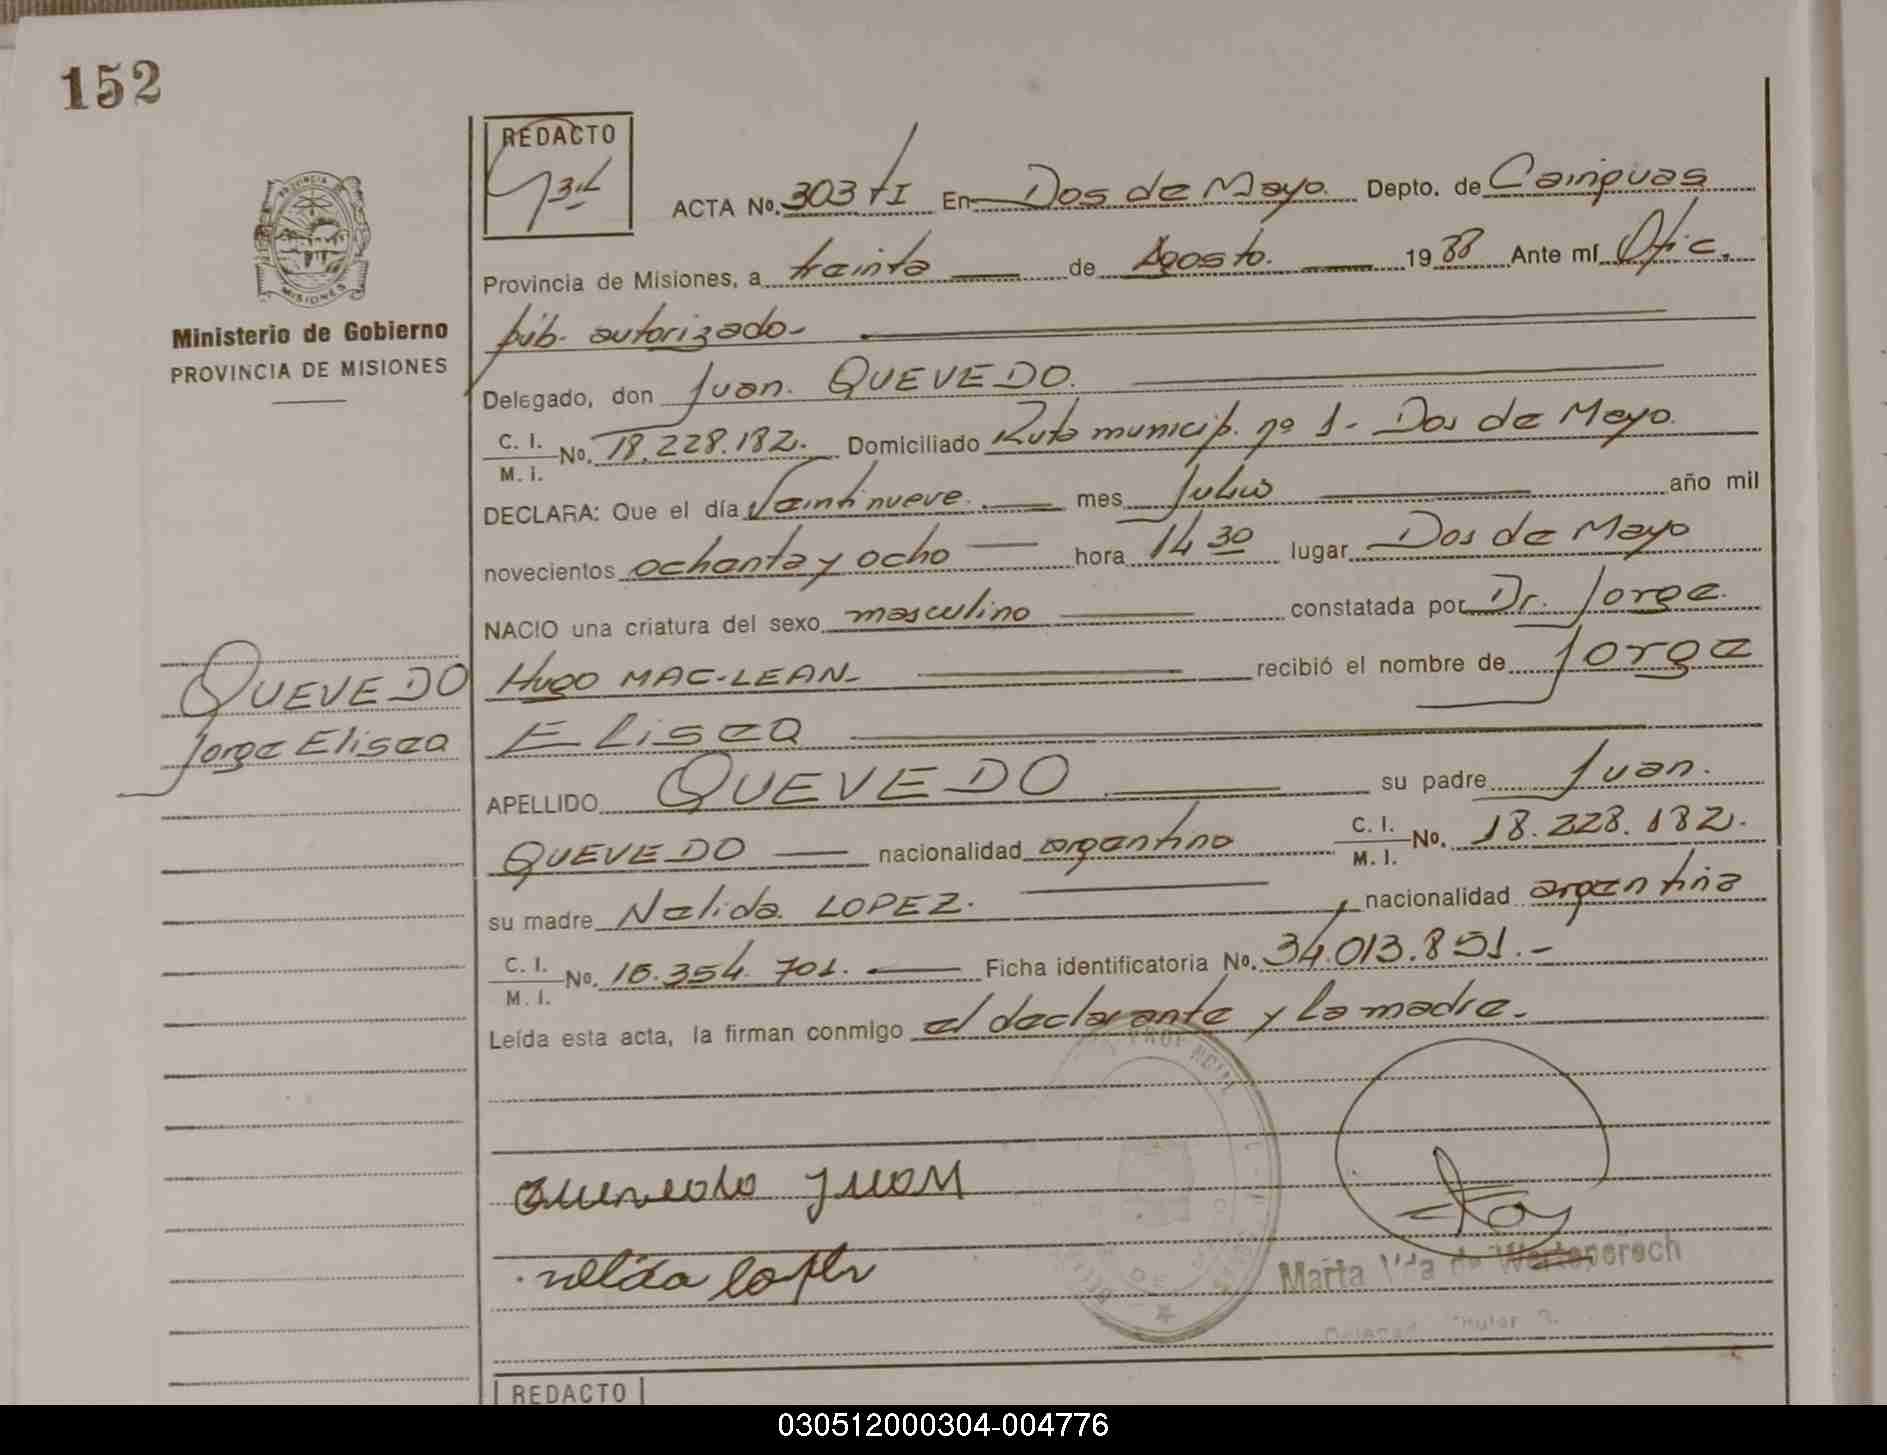 152
REDACTO
ACTA No. 303 tI En Dos de Mayo. Depto. de Cainguas
Provincia de Misiones, a treinta de Agosto. 1988 Ante mí Ofic.
púb. autorizado-
PROVINCIA
MISIONES
Ministerio de Gobierno
PROVINCIA DE MISIONES
Delegado, don Juan. QUEVEDO.
C. I.
M. I. No. 18.228.182. Domiciliado Ruta municip. nº 1- Dos de Mayo.
DECLARA: Que el día Veintinueve. mes Julio año mil
novecientos ochenta y ocho hora 14 30 lugar Dos de Mayo
NACIO una criatura del sexo masculino constatada por Dr. Jorge
Hugo MAC-LEAN- recibió el nombre de Jorge
Eliseo
QUEVEDO
Jorge Eliseo
APELLIDO QUEVEDO su padre Juan.
QUEVEDO nacionalidad argentino C. I.
M. I. No. 18.228.182.
su madre Nelida LOPEZ. nacionalidad argentina
C. I.
M. I. No. 16.354.701. Ficha identificatoria No. 34.013.851.-
Leída esta acta, la firman conmigo el declarante y la madre.
Juan
nelida lopez
Marta Vda de
REDACTO
030512000304-004776